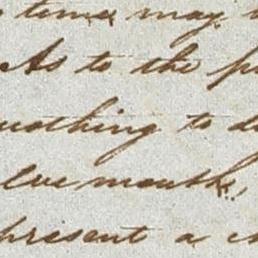 time may
As to the p
nothing to d
lve month,
present a ch